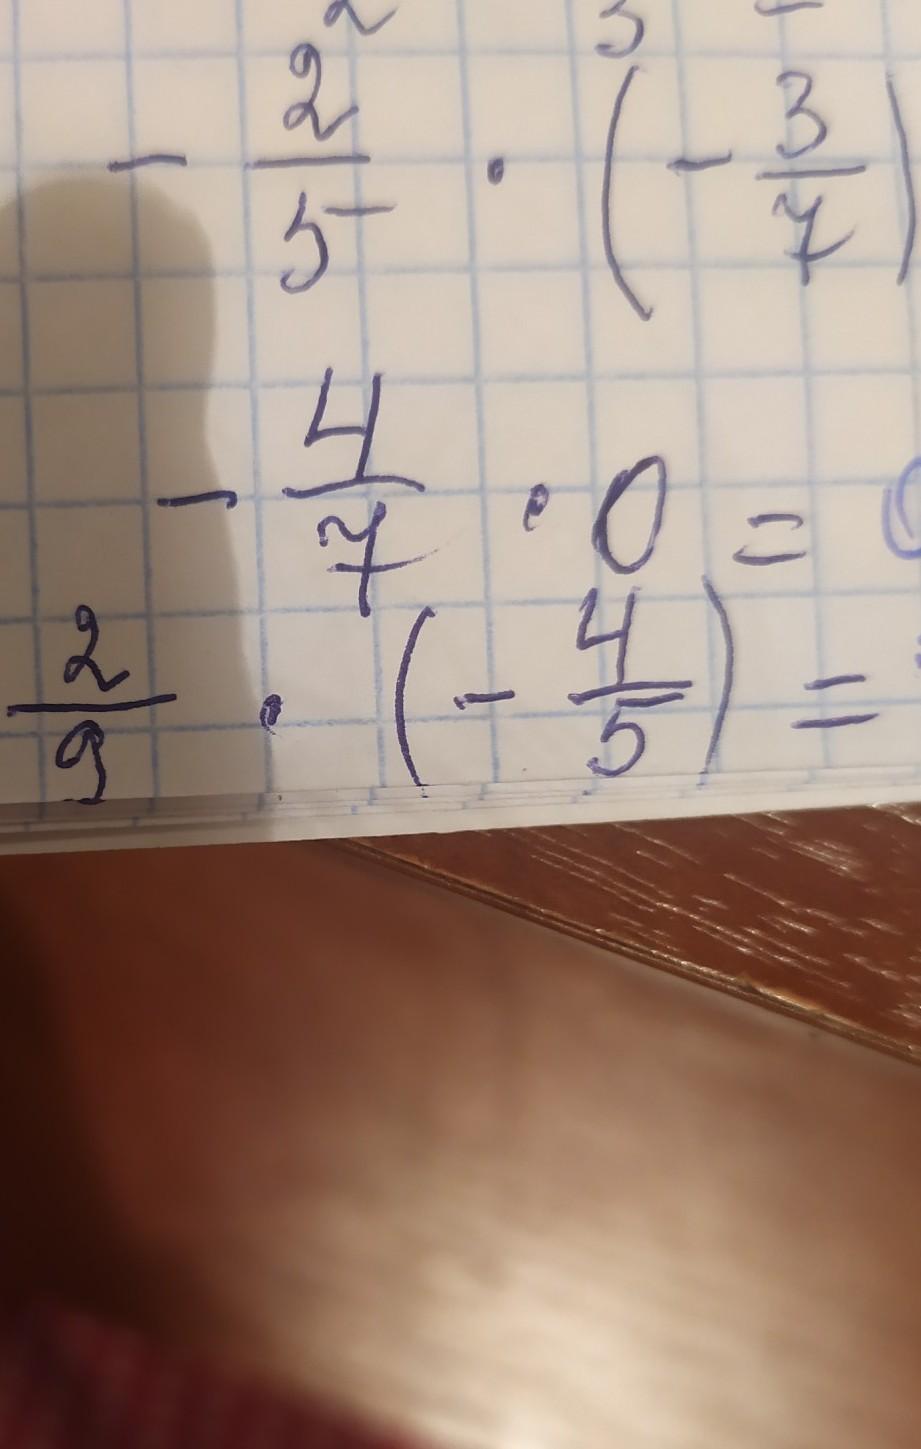 - 2/5 · (- 3/7)
- 4/7 · 0 =
2/9 · (- 4/5) =